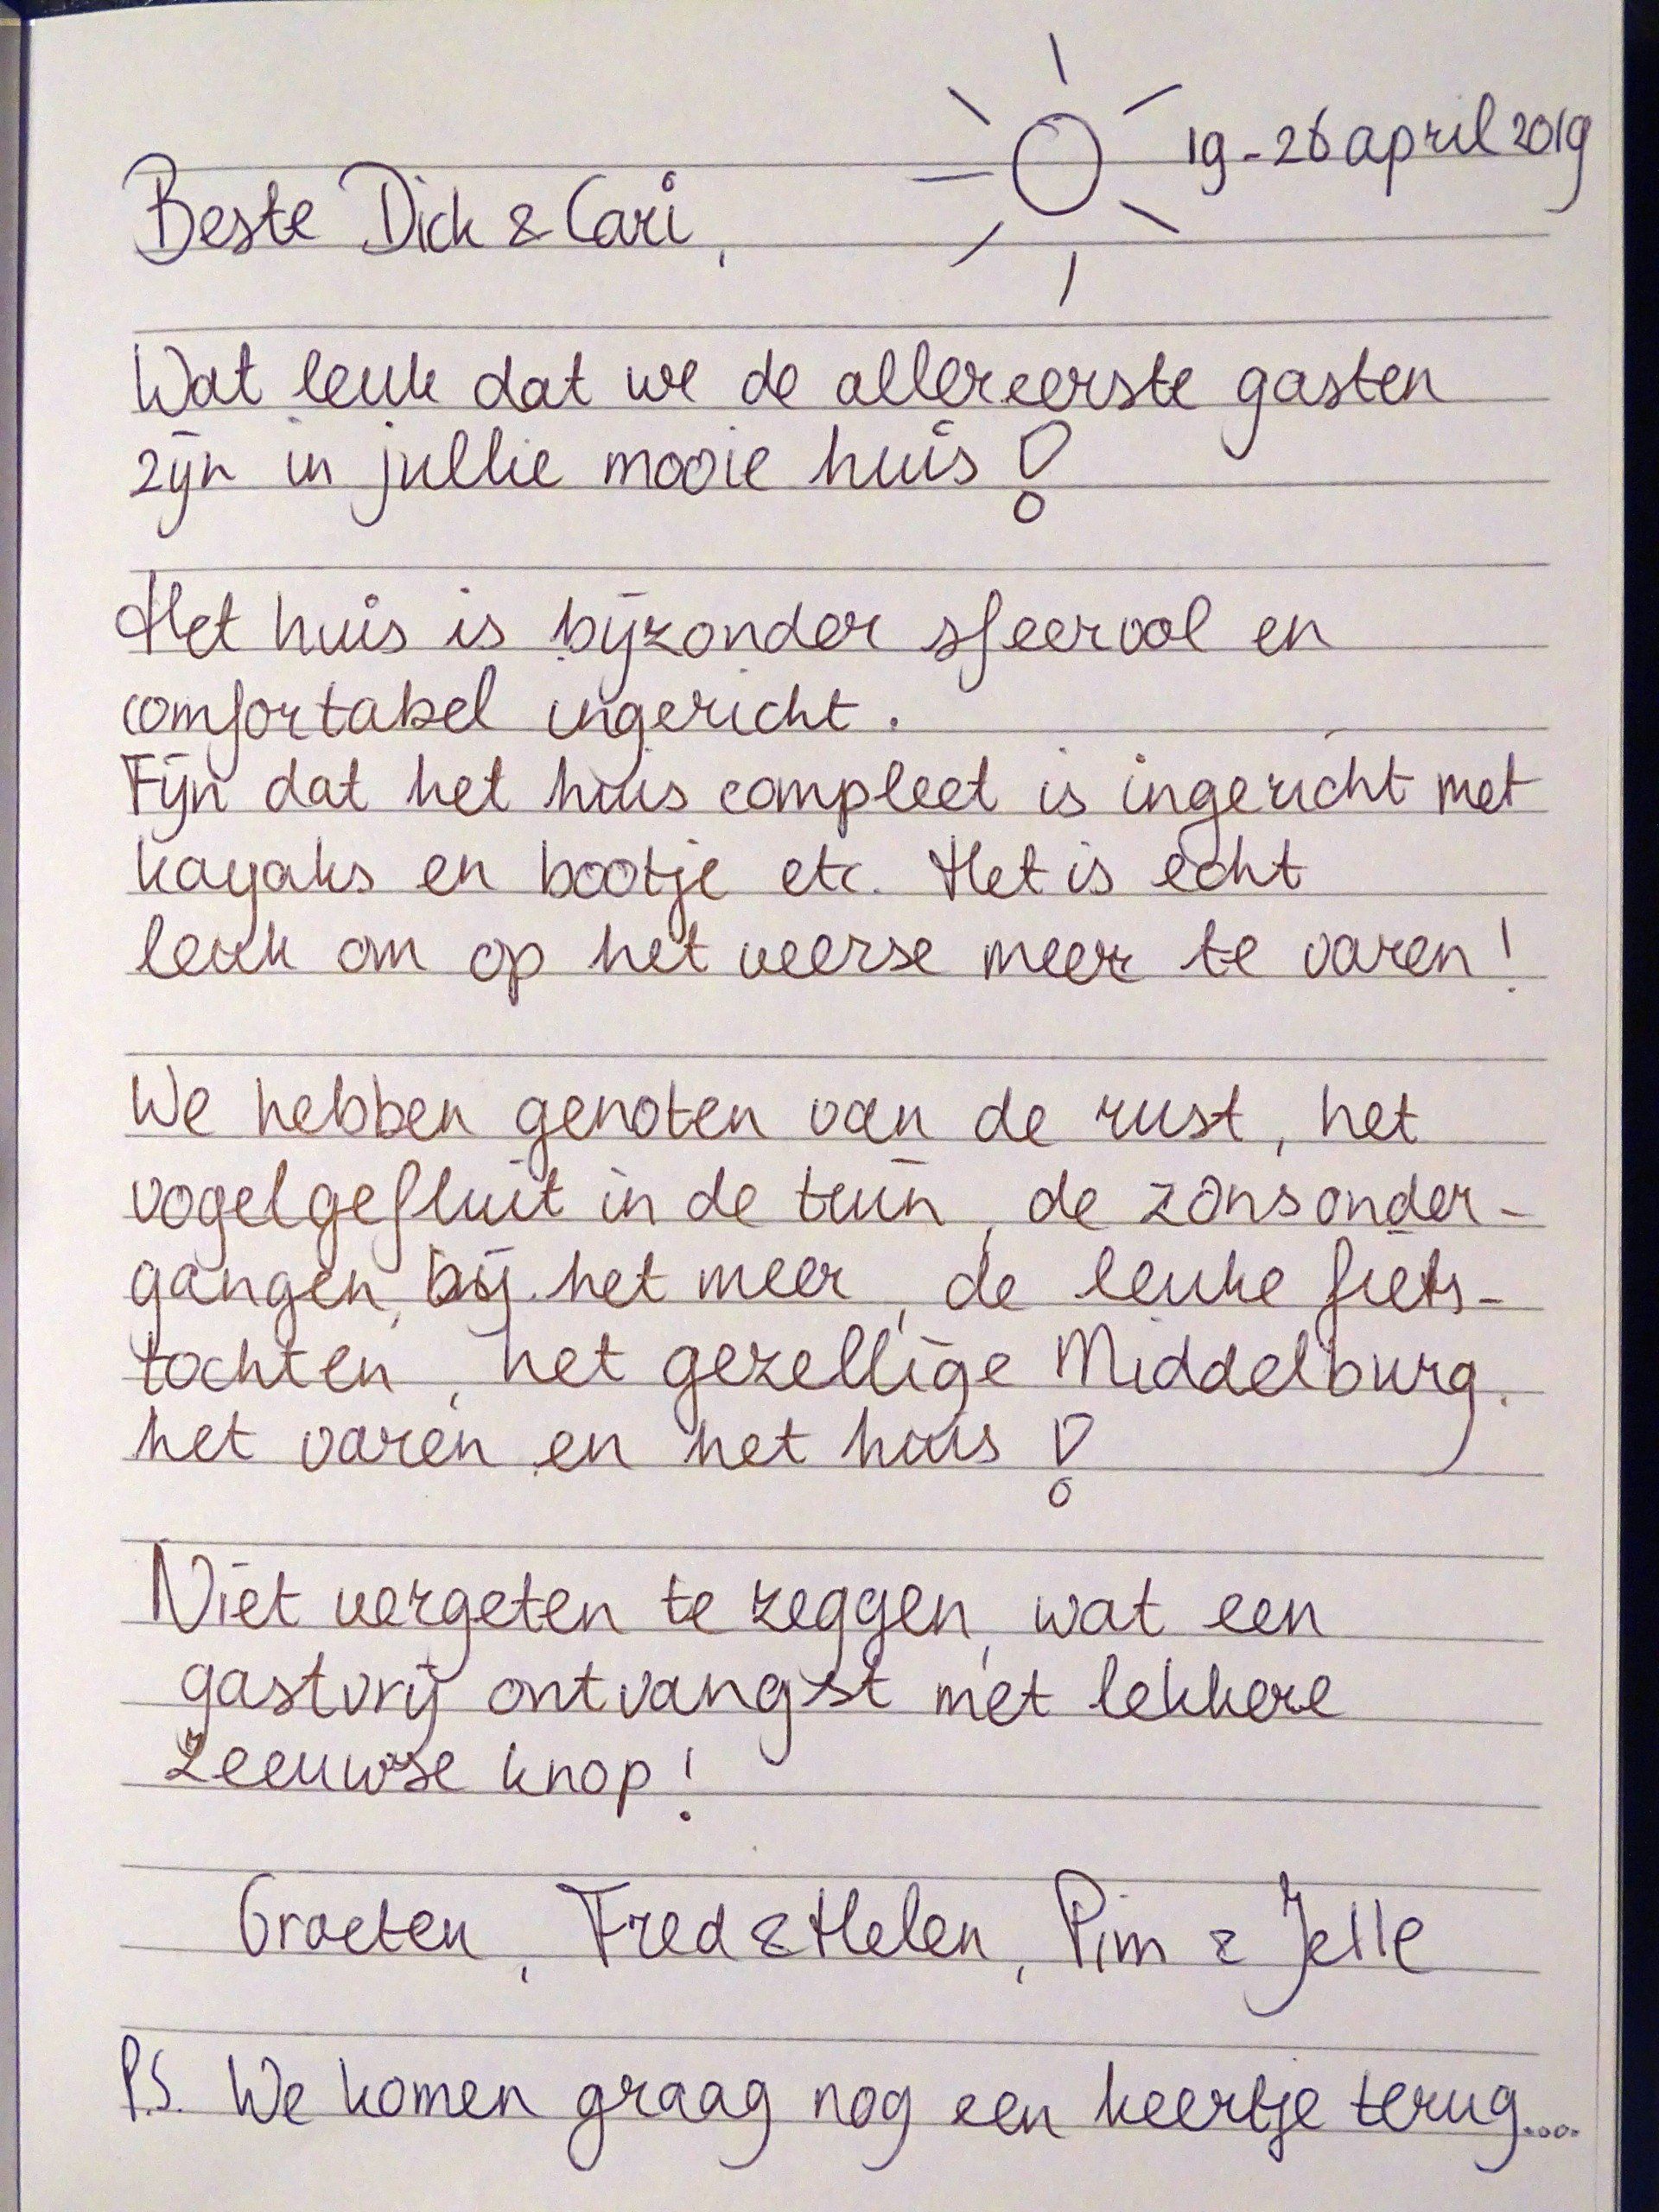 19-26 april 2019
Beste Dick & Cari,
Wat leuk dat we de allereerste gasten
zijn in jullie mooie huis!
Het huis is bijzonder sfeervol en
comfortabel ingericht.
Fijn dat het huis compleet is ingericht met
kayaks en bootje etc. Het is echt
leuk om op het veerse meer te varen!
We hebben genoten van de rust, het
vogelgefluit in de tuin, de zonsonder-
gangen, bij het meer, de leuke fiets-
tochten, het gezellige Middelburg,
het varen en het huis!
Niet vergeten te zeggen, wat een
gastvrij ontvangst met lekkere
zeeuwse knop!
Groeten, Fred & Helen, Pim & Jelle
P.S. We komen graag nog een keertje terug....